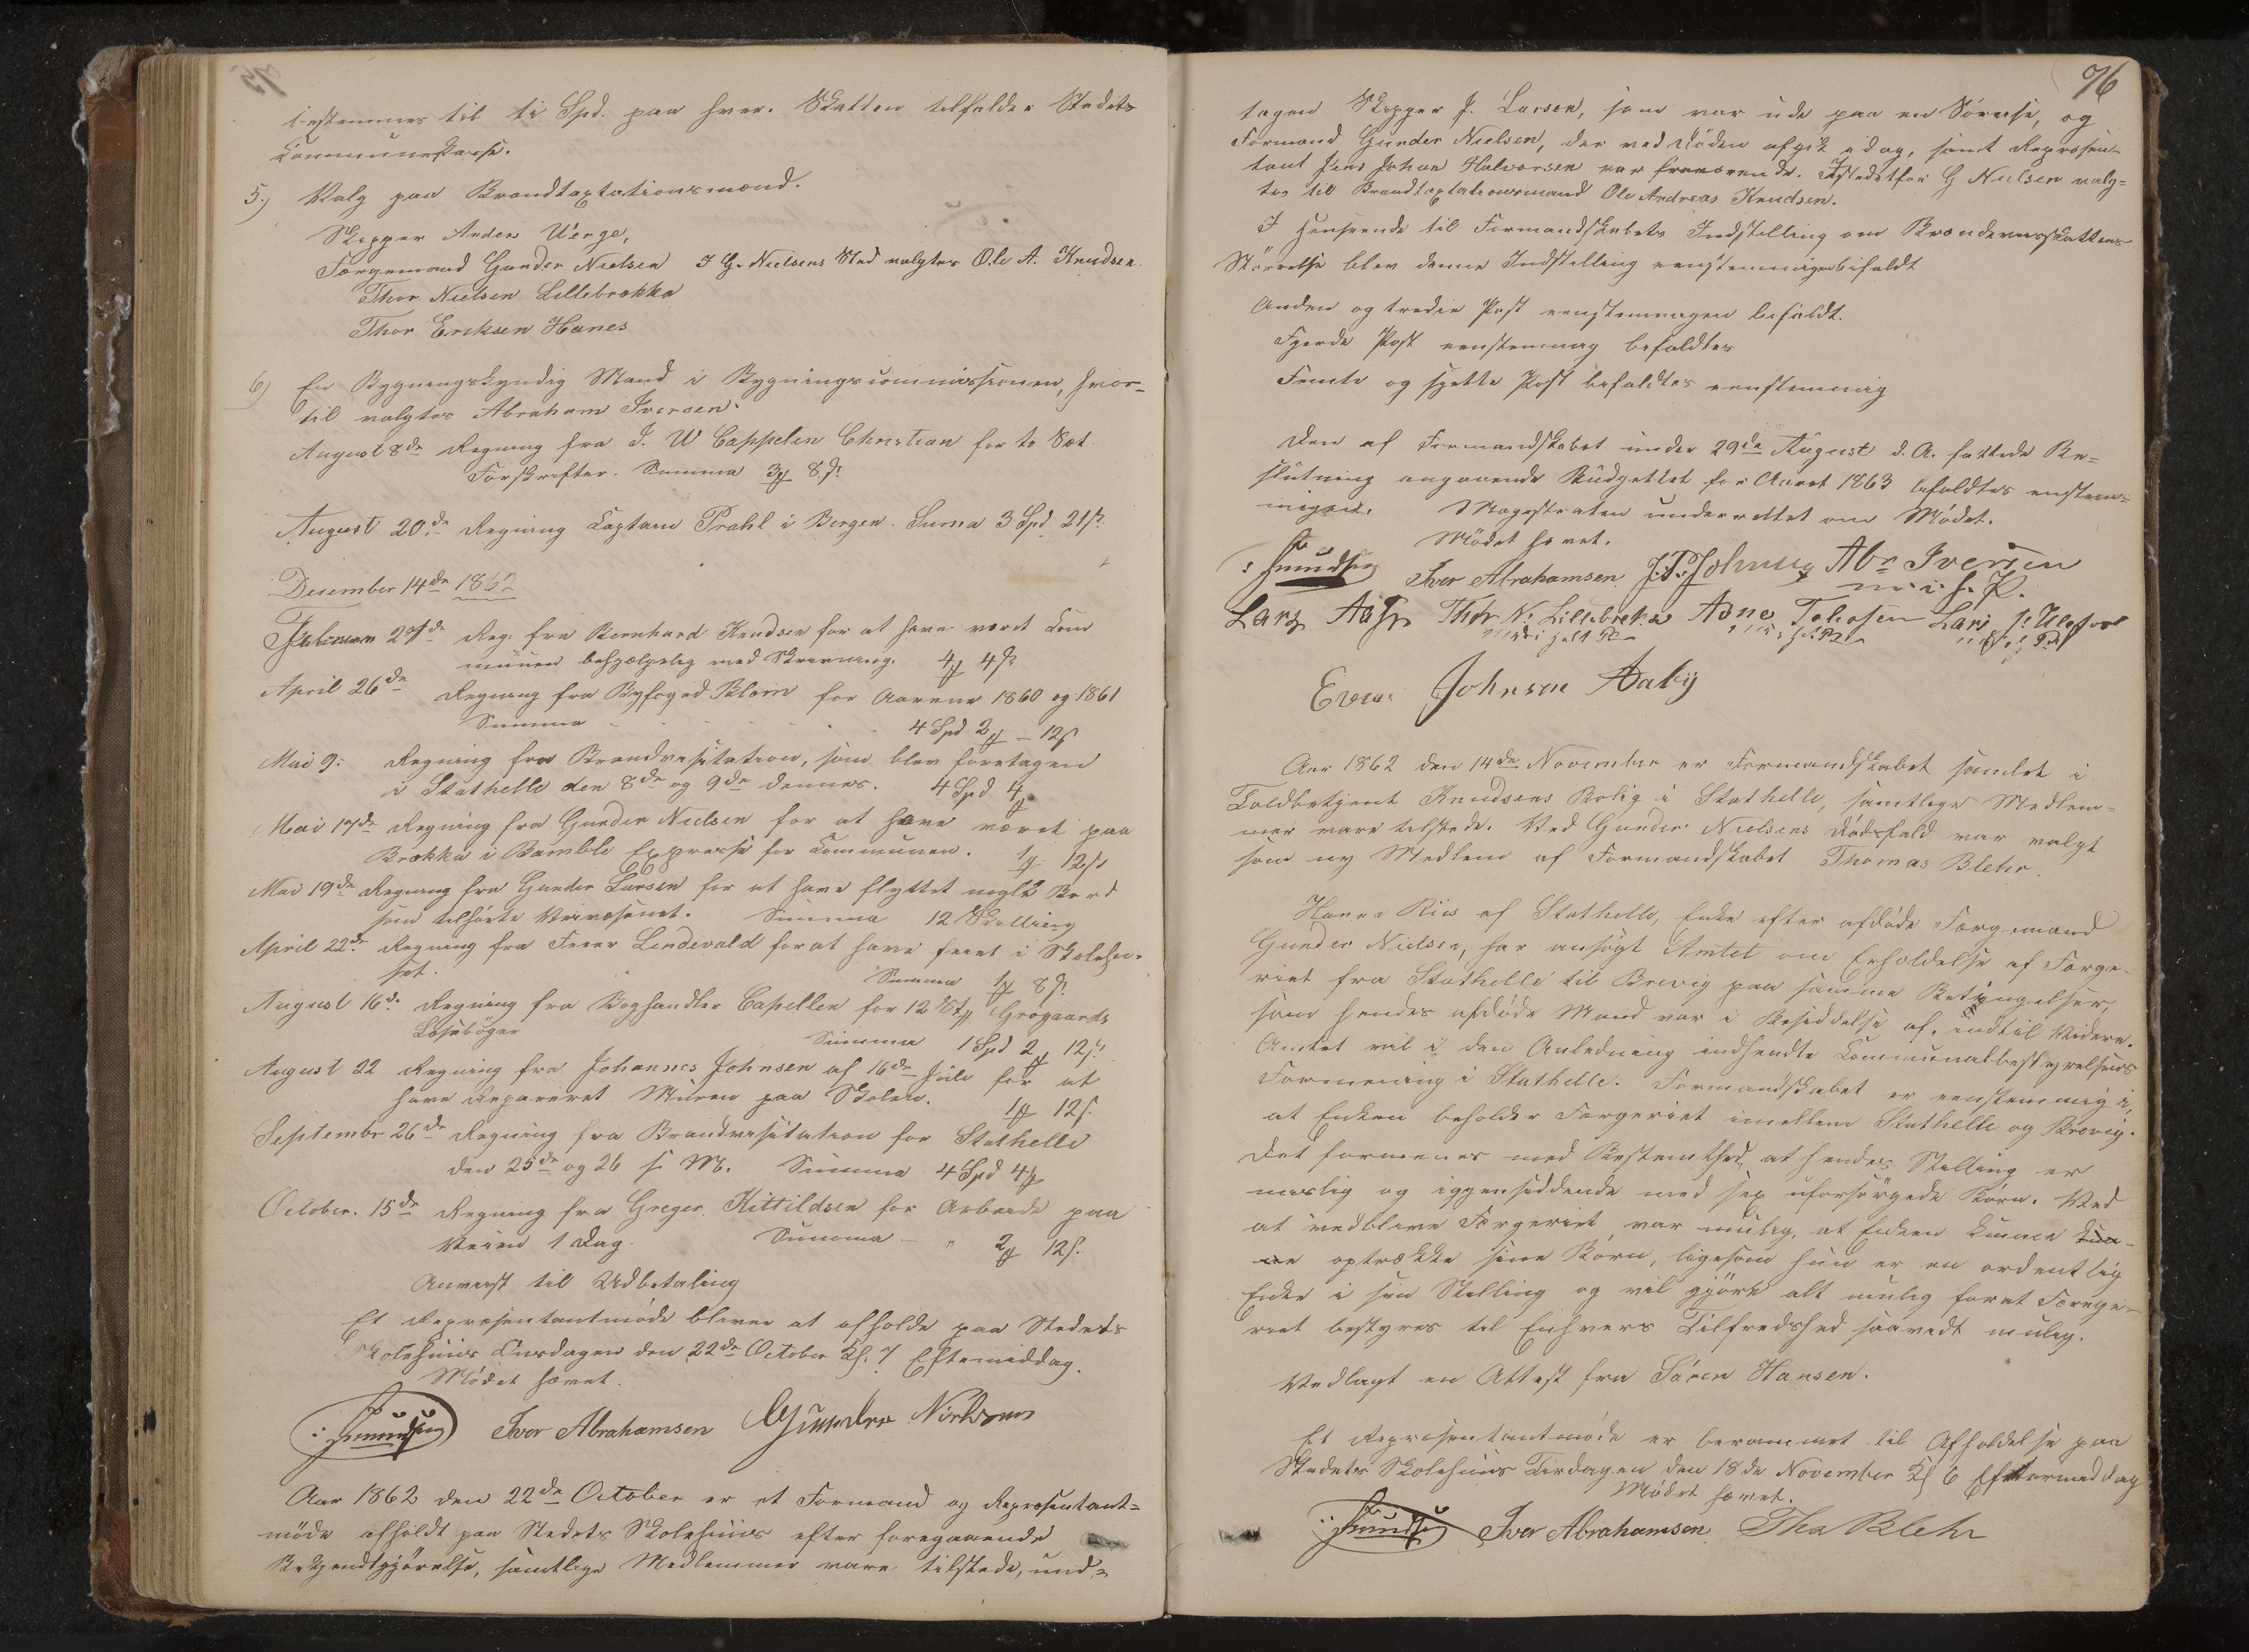 bestemmes til ti Spd. paa hver. Skatten tilfalder Stedets
Communekasse.
5) Valg paa Brandtaxtationsmænd.
Skipper Anders Wenge,
Færgemand Gunder Nielsen I G. Nielsens Sted valgtes Ole A. Knudsen.
Thor Nielsen Lillebrækka
Thor Eriksen Hanes
6) En Bygningskyndig Mand i Bygningscommissionen, hvor-
til valgtes Abraham Iversen.
August 8de Regning fra J. W Cappelen Christian for to Sæt
Forskrifter. Summa 3 8 s.
August 20de Regning Captain Prahl i Bergen. Suma 3 Spd. 21 s.
December 14de 1862
Februar 27de Reg. fra Bernhard Knudsen for at have været Com
munen behjælpelig med Skrivning. 4 4 s.
April 26de Regning fra Byfoged Blom for Aarene 1860 og 1861
Summa 4 Spd 2 – 12 s
Mai 9. Regning fra Brandvisitation, som blev foretagen
i Stathelle den 8de og 9de dennes. 4 Spd 4
Mai 17de Regning fra Gunder Nielsen for at have været paa
Brækka i Bamble Expresse for Communen. 1 12 s
Mai 19de Regning fra Gunder Larsen for at have flyttet nogle Bord
som tilhørte Veivæsenet. Summa 12 Skilling
April 22de Regning fra Feier Lindevald forat have feiet i Skolehu-
set. Summa 1 8 s.
August 16de Regning fra Boghandler Capellen for 12 Grøgaards
Læsebøger Summa 1 Spd 2 12 s.
August 22 Regning fra Johannes Johnsen af 16de Juli for at
have Repareret Muren paa Skolen. 1 12 s.
Septembr 26de Regning fra Brandvisitation for Stathelle
den 25de og 26 f. M. Summa 4 Spd 4
October. 15de Regning fra Greger Kittildsen for Arbeide paa
Veien 1 Dag. Summa – " 2 12 s.
Anvist til Udbetaling
Et Repræsentantmøde bliver at afholde paa Stedets
Skolehuus Onsdagen den 22de October Kl. 7 Eftemiddag.
Mødet hævet.
Knudsen Iver Abrahamsen Gunder Nielsen
Aar 1862 den 22de October er et Formand og Repræsentant-
møde afholdt paa Stedets Skolehuus efter foregaaende
Bekjendtgjørelse, samtlige Medlemmer vare tilstede, und-
76
tagen Skipper J. Larsen, som var ude paa en Søreise, og
Formand Gunder Nielsen, der ved Døden afgik idag, samt Repræsen-
tant Jens Johan Halvorsen var fraværende. Istedetfor G Nielsen valg-
tes til Brandtaxtationsmand Ole Andreas Knudsen.
I Henseende til Formandskabets Indstilling om Brændeviinsskattens
Størrelse blev denne Indstilling eenstemmigen bifaldt
Anden og tredie Post eenstemmigen bifaldt.
Fjerde Post eenstemmig bifaldtes
Femte og sjette Post bifaldtes eenstemmig
Den af Formandskabet under 29de August d. A. fattede Be-
slutning angaaende Budgettet for Aaret 1863 bifaldtes enstem-
migen. Magistraten underrettet om Mødet.
Mødet hævet.
Knudsen Iver Abrahamsen J. P. Johnsen Abr Iversen
m. i. h. P.
Lars Aas Thor N. Lillebrekka Lars
med i holt P
Even Johnsen Aaby
Aar 1862 den 14de November er Formandskabet samlet i
Toldbetjent Knudsens Bolig i Stathelle, samtlige Medlem-
mer vare tilstede. Ved Gunder Nielsens Dødsfald var valgt
som ny Medlem af Formandskabet Thomas Blehr.
Hanna Riis af Stathelle, Enke efter afdøde Færgemand
Gunder Nielsen, har ansøgt Amtet om Erholdelse af Færge-
riet fra Stathelle til Brevig paa samme Betingelser,
som hendes afdøde Mand var i Besiddelse af, indtil Videre.
Amtet vil i den Anledning indhendte Communalbestyrelsens
Formening i Stathelle. Formandskabet er eenstemmig i,
at Enken beholder Færgeriet imellem Stathelle og Brevig.
Det formenes med Bestemthed, at hendes Stilling er
maslig og iggensiddende med sex uforsørgede Børn. Ved
at vedblive Færgeriet, var mulig, at Enken kunne kun-
ne optrække sine Børn, ligesom hun er en ordentlig
Enke i sin Stilling og vil gjøre alt mulig forat Færge-
riet bestyres til Enhvers Tilfredshed saavidt mulig.
Vedlagt en Attest fra Søren Hansen.
Et Repræsentantmøde er berammet til Afholdelse paa
Stedets Skolehuus Tirdagen den 18de November Kl 6 Eftermiddag
Mødet hævet.
Knudsen Iver Abrahamsen Tho Blehr